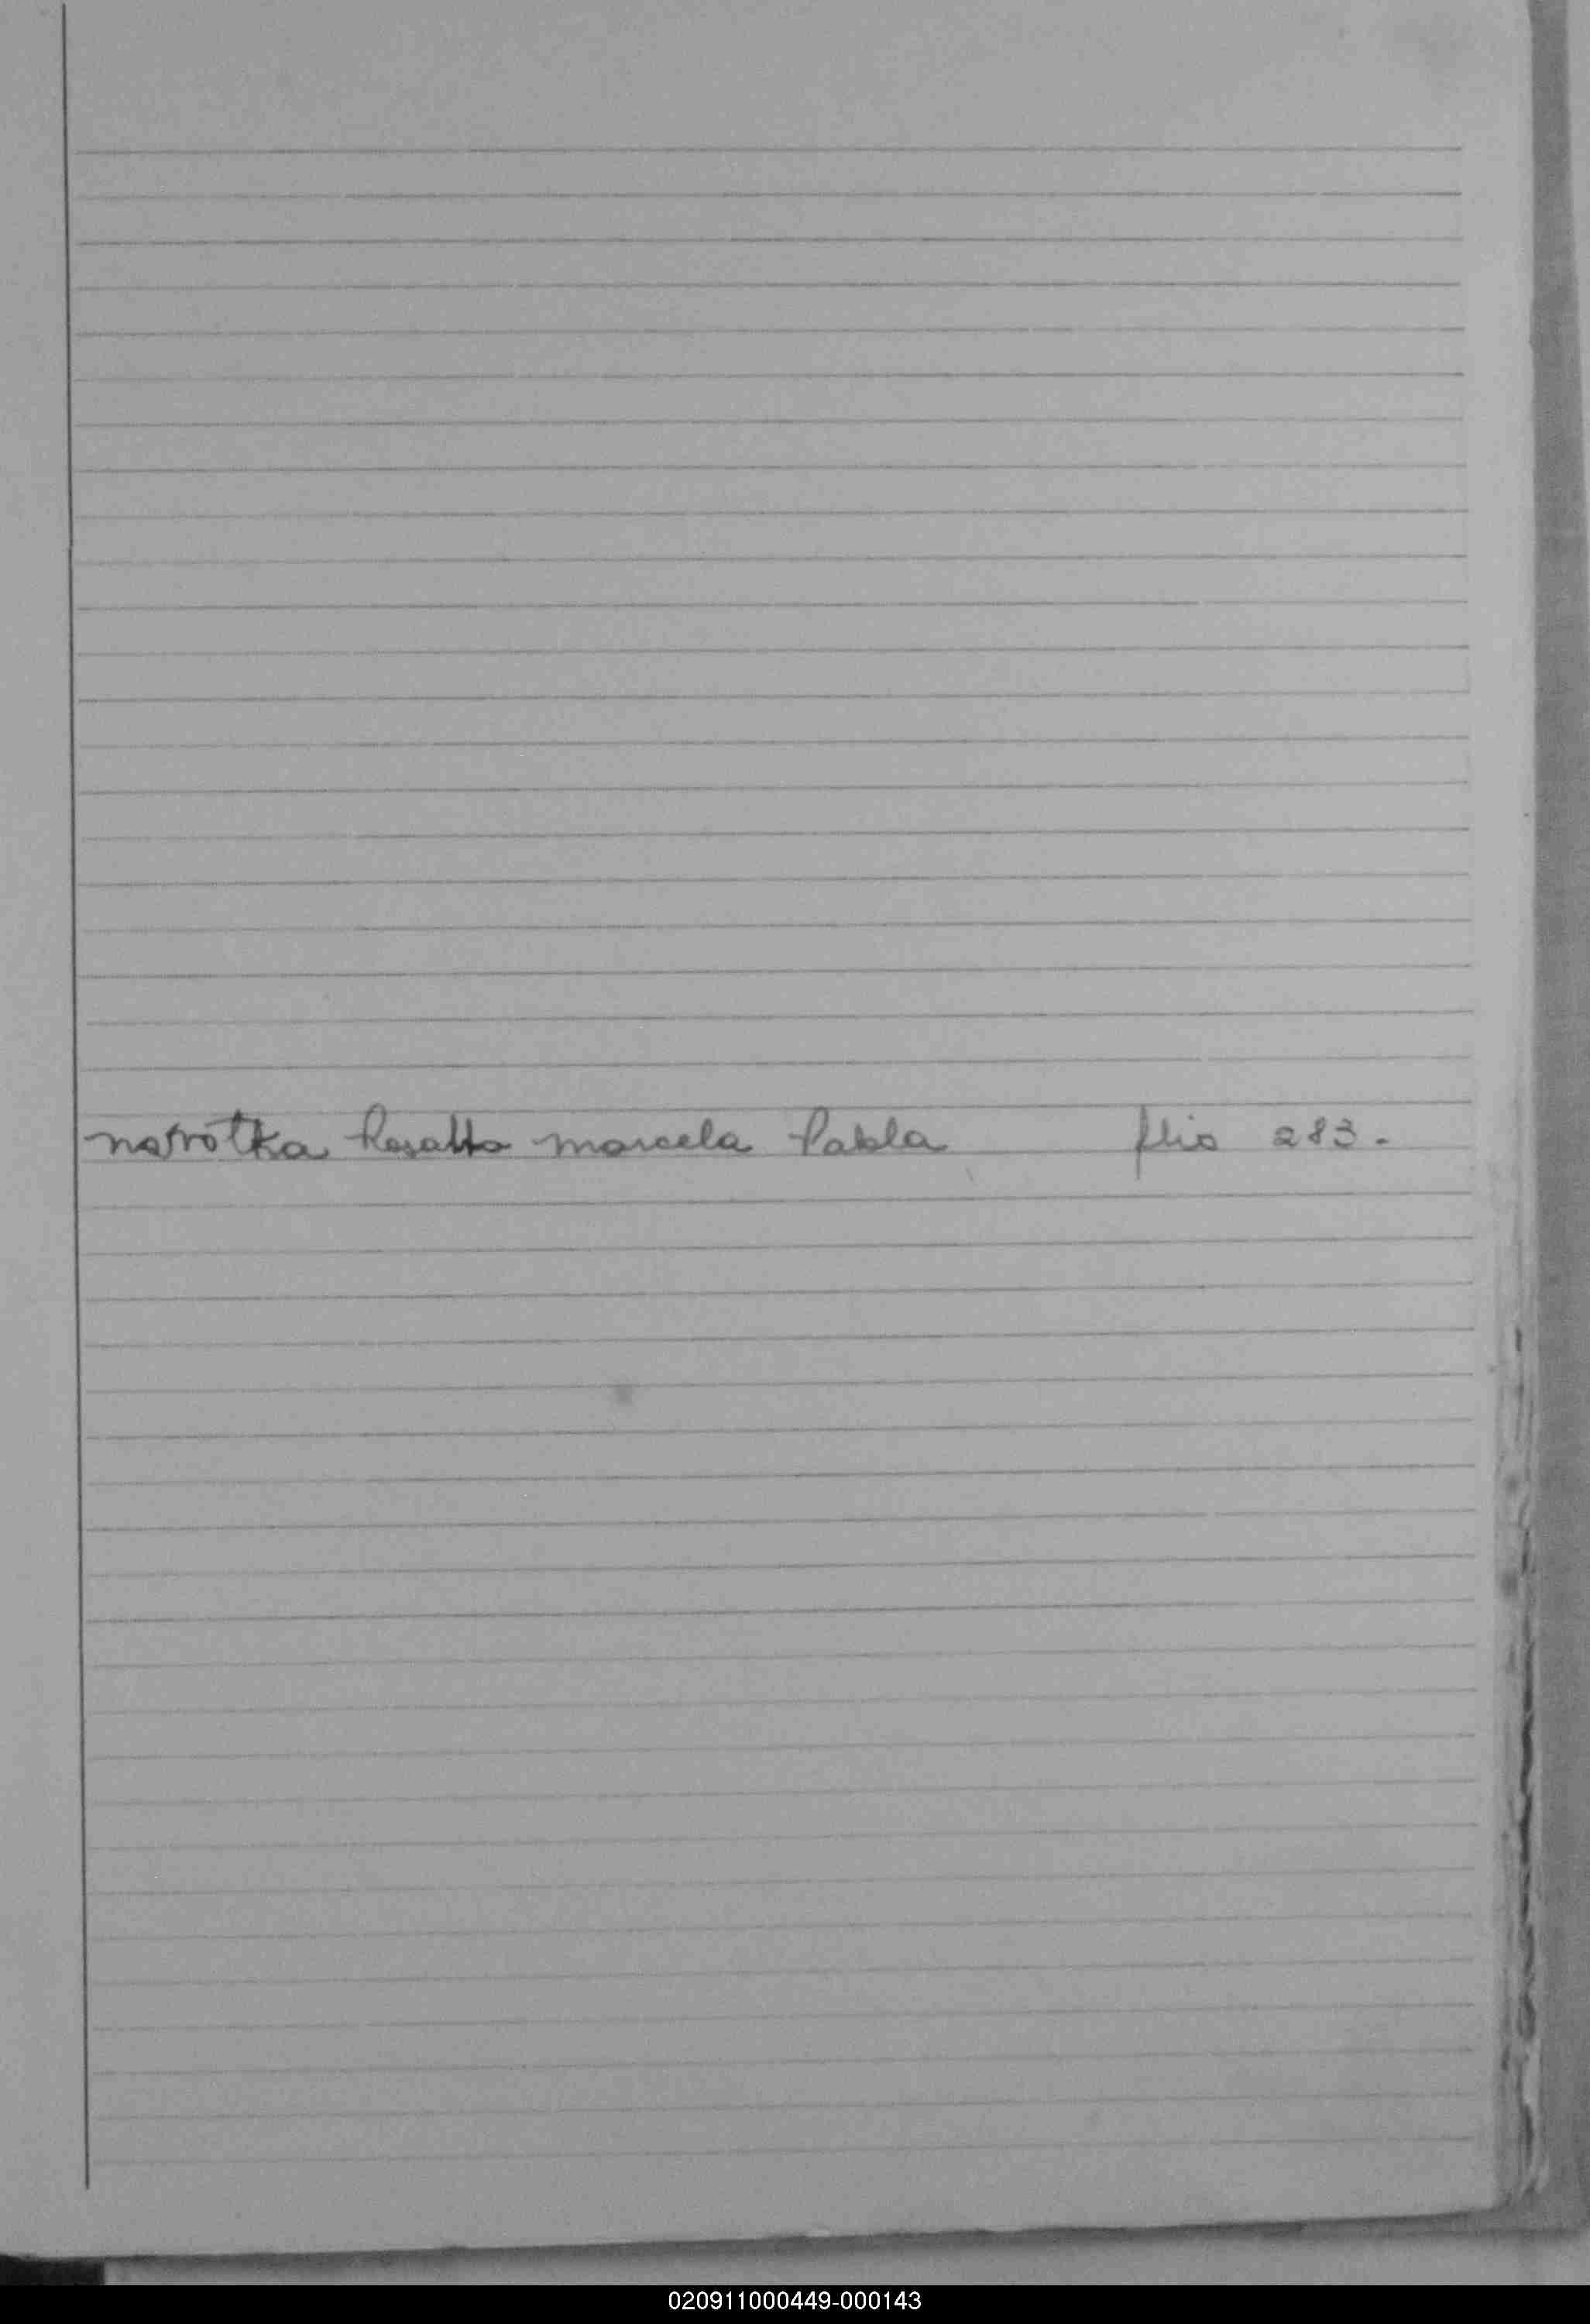 Navrotka Rosatto Marcela Pabla flio 283.
020911000449-000143